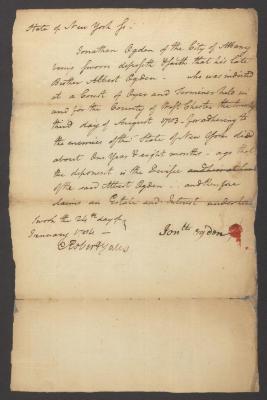 State of New York ss:
Jonathan Ogden of the City of Albany
being sworn deposeth & saith that his late
Brother Albert Ogden — who was indicted
at a Court of Oyer and Terminer held in
and for the County of West Chester the twenty
third day of August 1783. for adhering to
the enemies of the State of New York died
about One Year & eight months ago that
the deponent is the Devisee
of the said Albert Ogden .. and therefore
claims an Estate and Interest
Sworn the 24th day of
January 1784 —
Robert Yates
Jonth Ogden